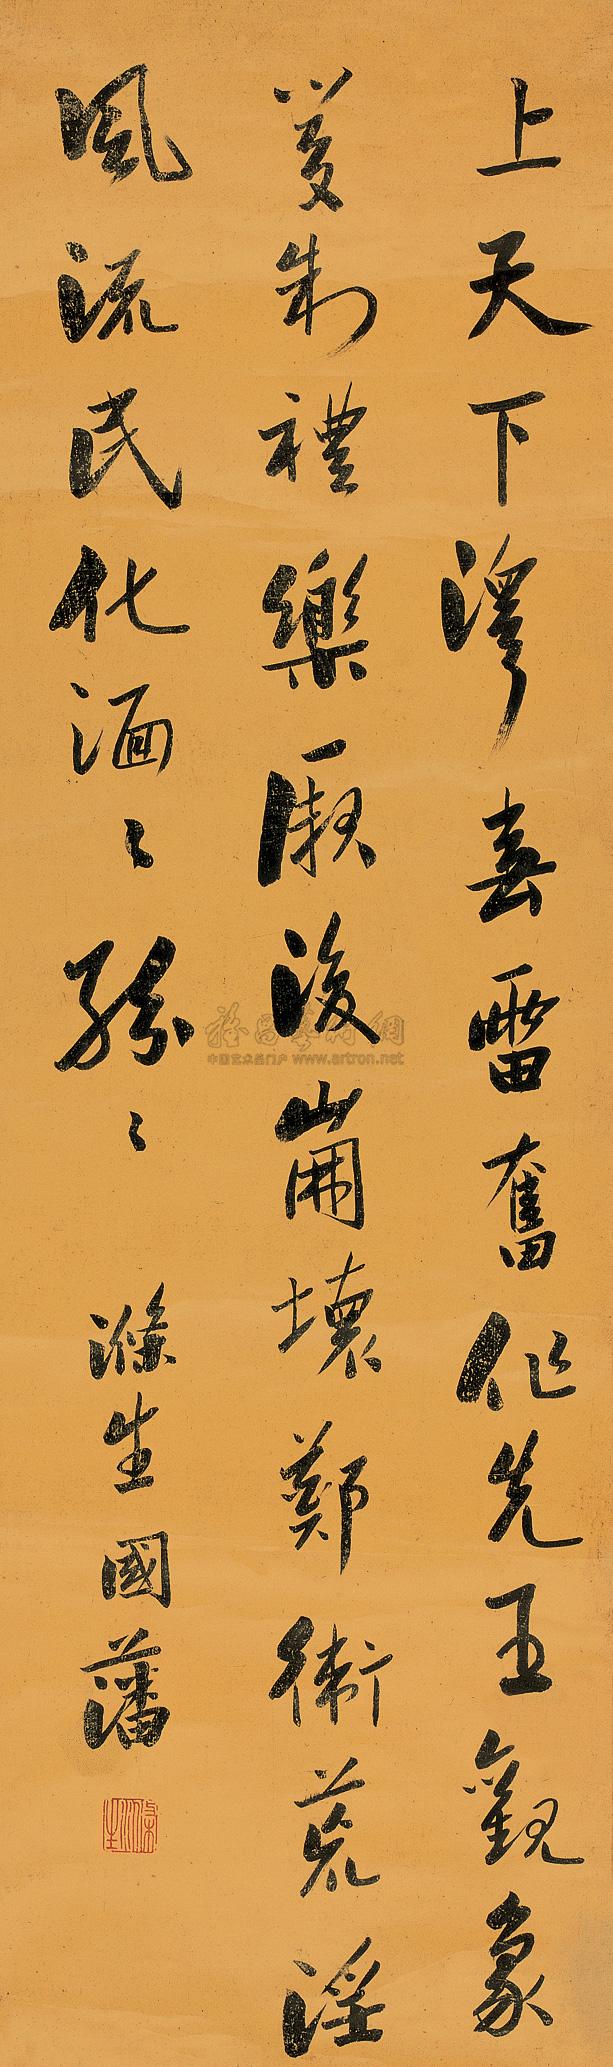 上天下澤春雷奮作先王觀象
爰制禮樂厥後崩壞鄭衛荒淫
風流民化湎〻紛〻
滌生國藩
雅昌藝術網
中国艺术品门户 www.artron.net